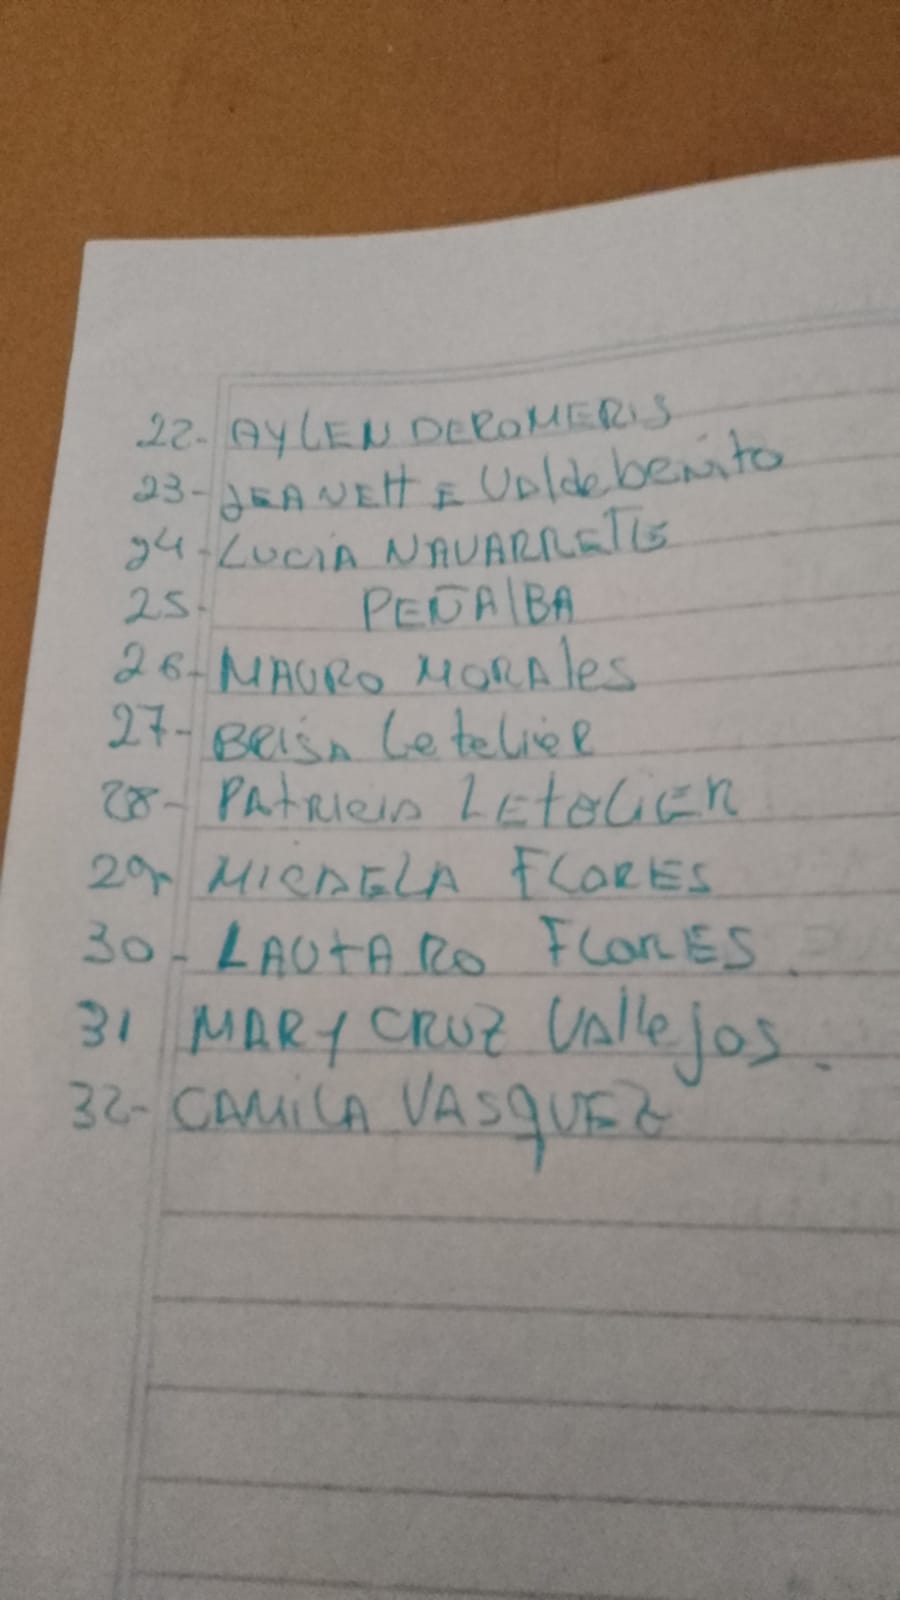 22- AYLEN DEROMERIS
23- JEANETTE Valdebenito
24- LUCIA NAVARRETE
25- PEÑALBA
26- MAURO MORALES
27- BRISA Letelier
28- PATRICIA LETELIER
29- MICAELA FLORES
30- LAUTARO FLORES
31 MARY CRUZ Vallejos.
32- CAMILA VASQUEZ